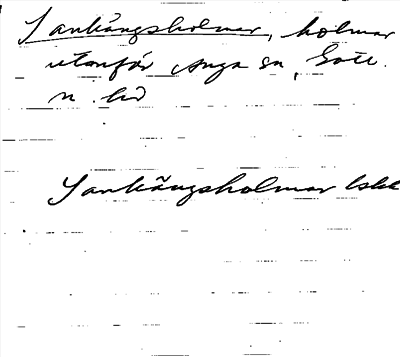 Sankängsholmar, holmar
utanför Anga sn, Gotl.
n. hd
Sankängsholmar